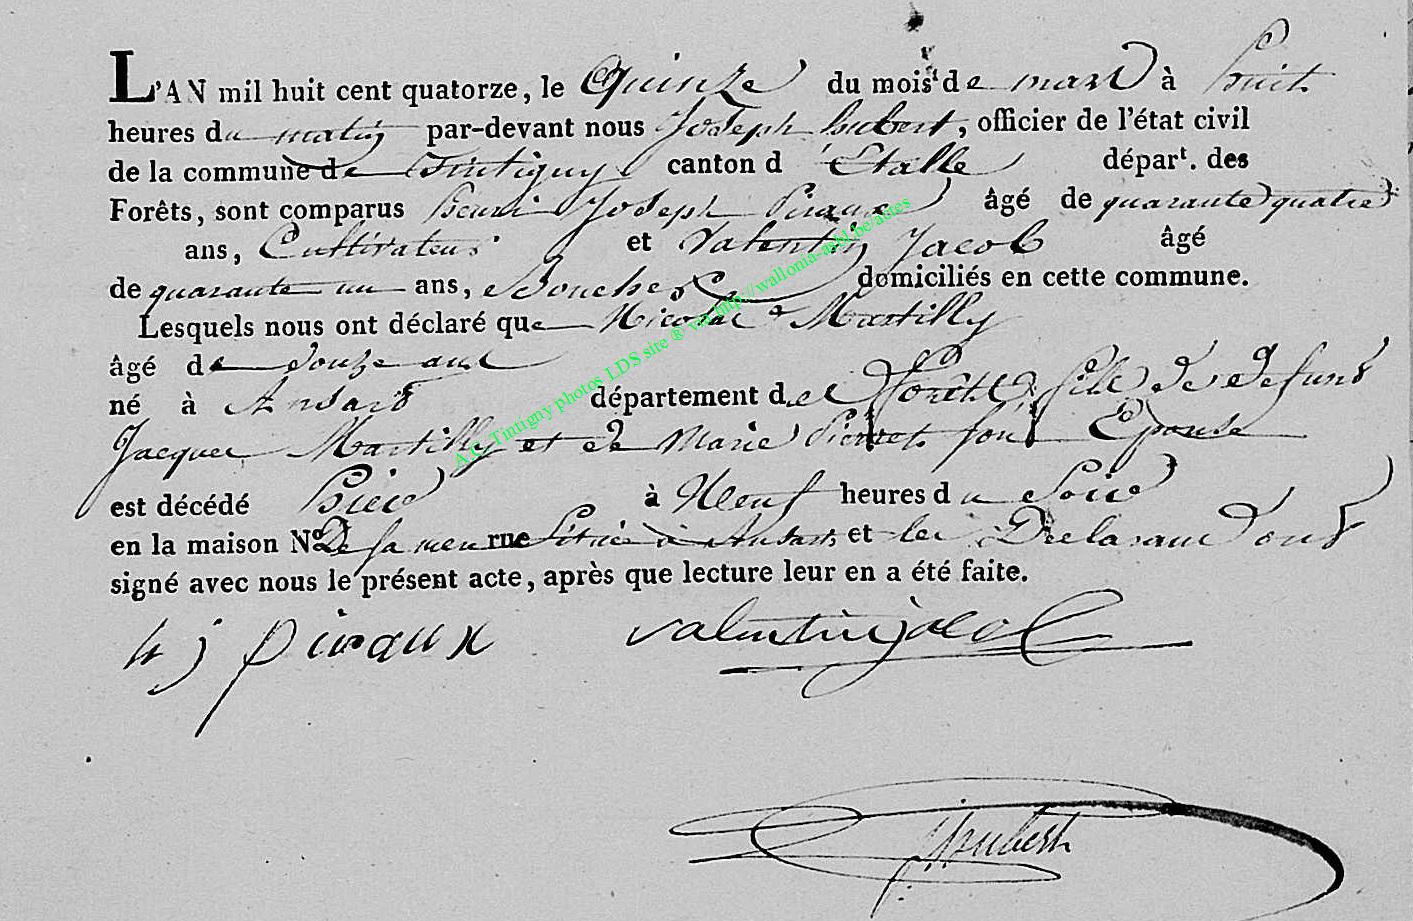 L'AN mil huit cent quatorze, le Quinze du mois de mars à huit
heures du matin par-devant nous Joseph hubert, officier de l'état civil
de la commune de Tintigny canton d'Etalle départ. des
Forêts, sont comparus henri Joseph Piraux âgé de quarante quatre
ans, Cultivateur et Valentin Jacob âgé
de quarante un ans, Boucher domiciliés en cette commune.
Lesquels nous ont déclaré que Nicolas Martilly
âgé de douze ans
né à Ansart département des Forêts, fils de defunt
Jacques Martilly et de Marie Pierret son Epouse
est décédé hier à Neuf heures du Soir
en la maison No. De sa mere rue Située à Ansart, et les Declarans ont
signé avec nous le présent acte, après que lecture leur en a été faite.
h j piraux valentin jacob
J hubert
A.C. Tintigny photos LDS site ® via http://wallonia-asbl.be/actes